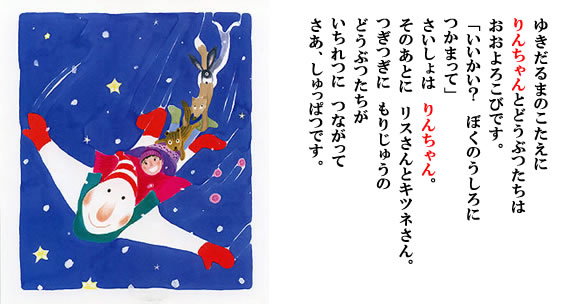 ゆきだるまのこたえに
りんちゃんとどうぶつたちは
おおよろこびです。
「いいかい？　ぼくのうしろに
つかまって」
さいしょは　りんちゃん。
そのあとに　リスさんとキツネさん。
つぎつぎに　もりじゅうの
どうぶつたちが
いちれつに　つながって
さあ、しゅっぱつです。